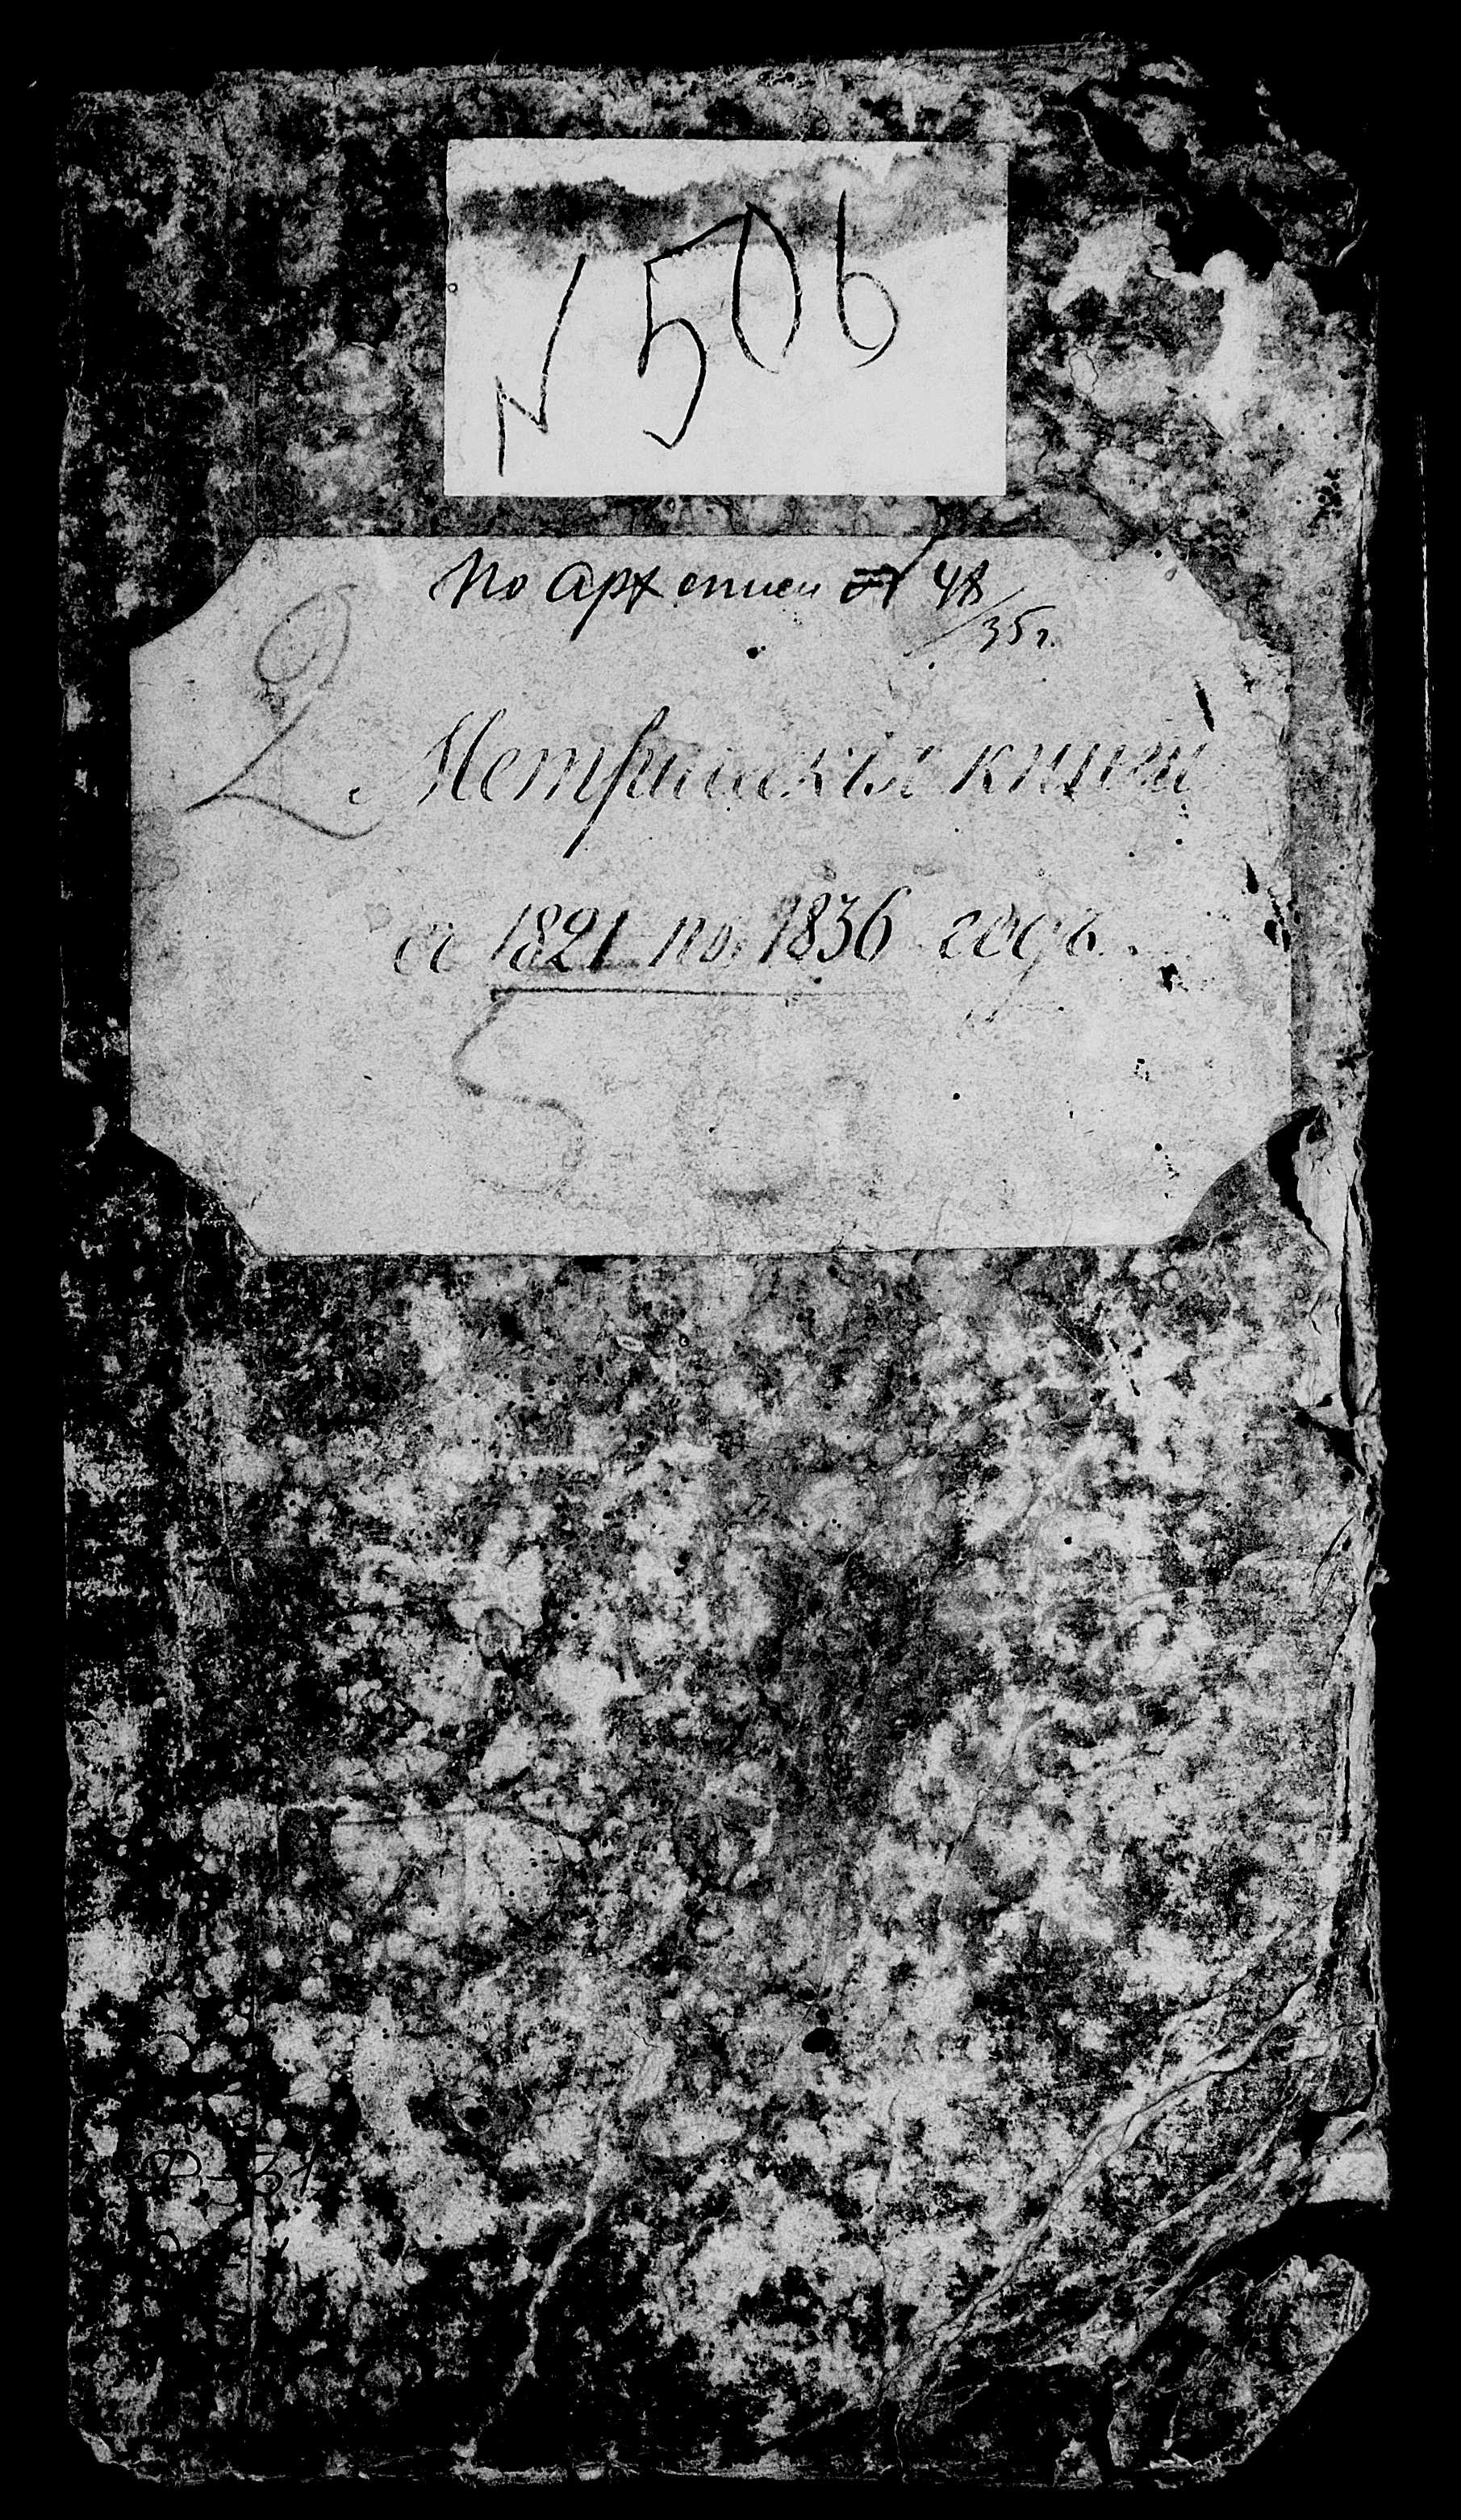 N 506
По арх описи № 48/35 г.
2. Метрическія книги
съ 1821 по 1836 годъ.
5